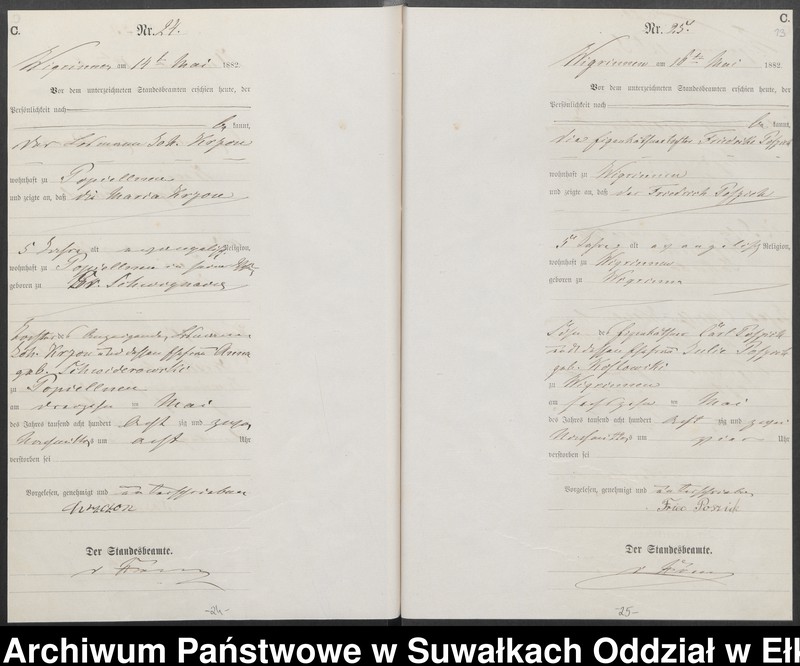 C.
Nr. 24.
Wigrinnen am 14ten Mai 1882.
Vor dem unterzeichneten Standesbeamten erschien heute, der
Persönlichkeit nach
be kannt,
der Losmann Joh. Krzon
wohnhaft zu Popiellnen
und zeigte an, daß die Maria Krzon
5 Jahre alt evangelisch Religion,
wohnhaft zu Popiellnen
geboren zu
Tochter des Anzeigenden, Losmann
Joh. Krzon und dessen Ehefrau Anna
geb. Schwiderowski
zu Popiellnen
am vierzehn ten Mai
des Jahres tausend acht hundert acht zig und zwei
Vormittags um acht Uhr
verstorben sei
Vorgelesen, genehmigt und unterschrieben
Der Standesbeamte.
-24-
C.
Nr. 25.
Wigrinnen am 16ten Mai 1882.
Vor dem unterzeichneten Standesbeamten erschien heute, der
Persönlichkeit nach
be kannt,
die Friedrike
wohnhaft zu Wigrinnen
und zeigte an, daß der Friedrich
5 alt evangelisch Religion,
wohnhaft zu Wigrinnen
geboren zu Wigrinnen
Sohn des Carl
und dessen Ehefrau Julie
geb. Koslowski
zu Wigrinnen
am sechszehn ten Mai
des Jahres tausend acht hundert acht zig und zwei
Vormittags um vier Uhr
verstorben sei
Vorgelesen, genehmigt und unterschrieben
Der Standesbeamte.
-25-
Archiwum Państwowe w Suwałkach Oddział w Eł